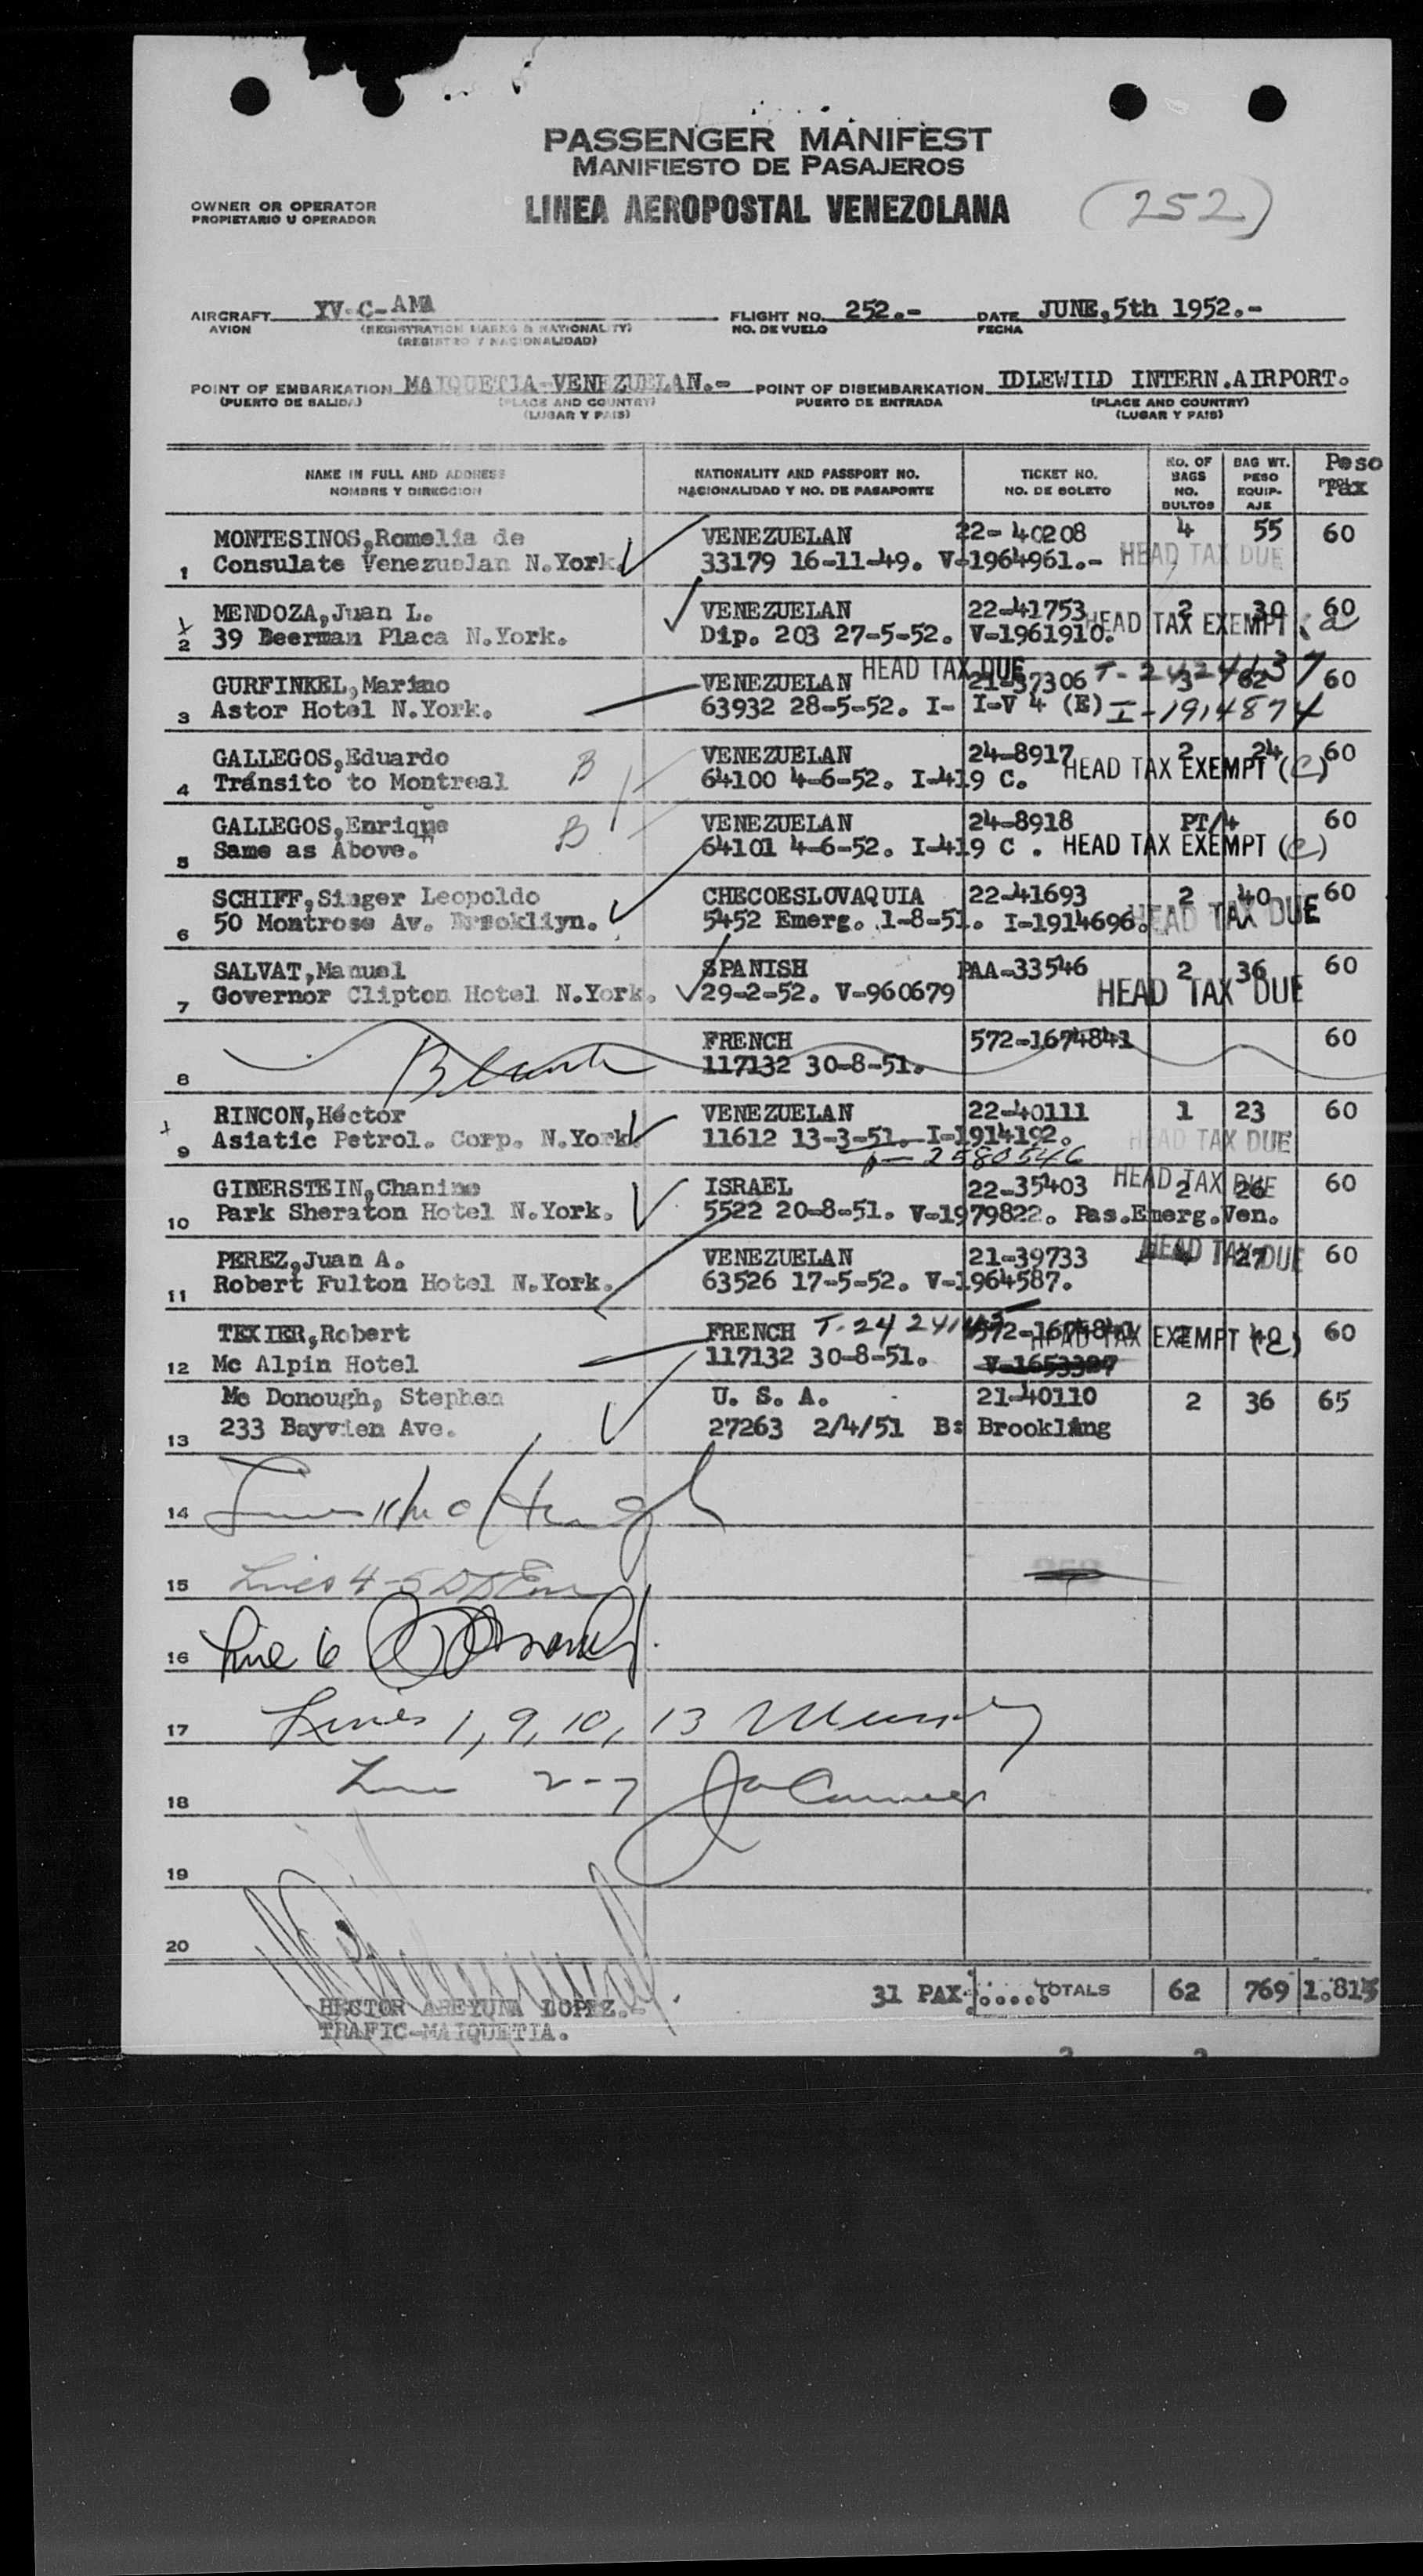 PASSENGER MANIFEST
MANIFIESTO DE PASAJEROS
OWNER OR OPERATOR
PROPIETARIO U OPERADOR
LINEA AEROPOSTAL VENEZOLANA
(252)
AIRCRAFT YV-C-AMA FLIGHT NO. 252.- DATE JUNE,5th 1952.-
AVION (REGISTRATION MARKS & NATIONALITY) NO. DE VUELO FECHA
(REGISTRO Y NACIONALIDAD)
POINT OF EMBARKATION MAIQUETIA-VENEZUELAN.- POINT OF DISEMBARKATION IDLEWILD INTERN.AIRPORT.
(PUERTO DE SALIDA) (PLACE AND COUNTRY) PUERTO DE ENTRADA (PLACE AND COUNTRY)
(LUGAR Y PAIS) (LUGAR Y PAIS)
NAME IN FULL AND ADDRESS NATIONALITY AND PASSPORT NO. TICKET NO. NO. OF BAGS BAG WT. Peso
NOMBRE Y DIRECCION NACIONALIDAD Y NO. DE PASAPORTE NO. DE BOLETO NO. BULTOS PESO EQUIP-AJE Pax
MONTESINOS,Romelia de VENEZUELAN 22-40208 4 55 60
1 Consulate Venezuelan N.York. 33179 16-11-49. V-1964961.- HEAD TAX DUE
MENDOZA,Juan L. VENEZUELAN 22-41753 2 30 60
2 39 Beerman Placa N.York. Dip. 203 27-5-52. V-1961910. HEAD TAX EXEMPT (a
GURFINKEL,Marino VENEZUELAN HEAD TAX DUE 21-37306 T-2424137 3 62 60
3 Astor Hotel N.York. 63932 28-5-52. I- I-V 4 (E) I-1914874
GALLEGOS,Eduardo B VENEZUELAN 24-8917 2 24 60
4 Tránsito to Montreal 64100 4-6-52. I-419 C. HEAD TAX EXEMPT (C)
GALLEGOS,Enrique B VENEZUELAN 24-8918 PT/4 60
5 Same as Above." 64101 4-6-52. I-419 C . HEAD TAX EXEMPT (C)
SCHIFF,Singer Leopoldo CHECOESLOVAQUIA 22-41693 2 40 60
6 50 Montrose Av. Brookliyn. 5452 Emerg. 1-8-51. I-1914696. HEAD TAX DUE
SALVAT,Manuel SPANISH PAA-33546 2 36 60
7 Governor Clipton Hotel N.York. 29-2-52. V-960679 HEAD TAX DUE
Blank FRENCH 572-1674841 60
8 117132 30-8-51.
RINCON,Héctor VENEZUELAN 22-40111 1 23 60
9 Asiatic Petrol. Corp. N.York. 11612 13-3-51. I-1914192. HEAD TAX DUE
2580546
GIBERSTEIN,Chanine ISRAEL 22-35403 HEAD TAX DUE 2 26 60
10 Park Sheraton Hotel N.York. 5522 20-8-51. V-1979822. Pas.Emerg.Ven.
PEREZ,Juan A. VENEZUELAN 21-39733 HEAD TAX DUE 4 27 60
11 Robert Fulton Hotel N.York. 63526 17-5-52. V-1964587.
TEXIER,Robert FRENCH 572-1674841 HEAD TAX EXEMPT (C) 2 42 60
12 Mc Alpin Hotel 117132 30-8-51. V-1653387
Mc Donough, Stephen U. S. A. 21-40110 2 36 65
13 233 Bayvien Ave. 27263 2/4/51 B: Brookling
14
15 Lines 4-5
16 Line 6
17 Lines 1, 9, 10, 13
18 Line 2-7
19
20
31 PAX TOTALS 62 769 1.815
HECTOR AREYUNA LOPEZ.
TRAFIC-MAIQUETIA.